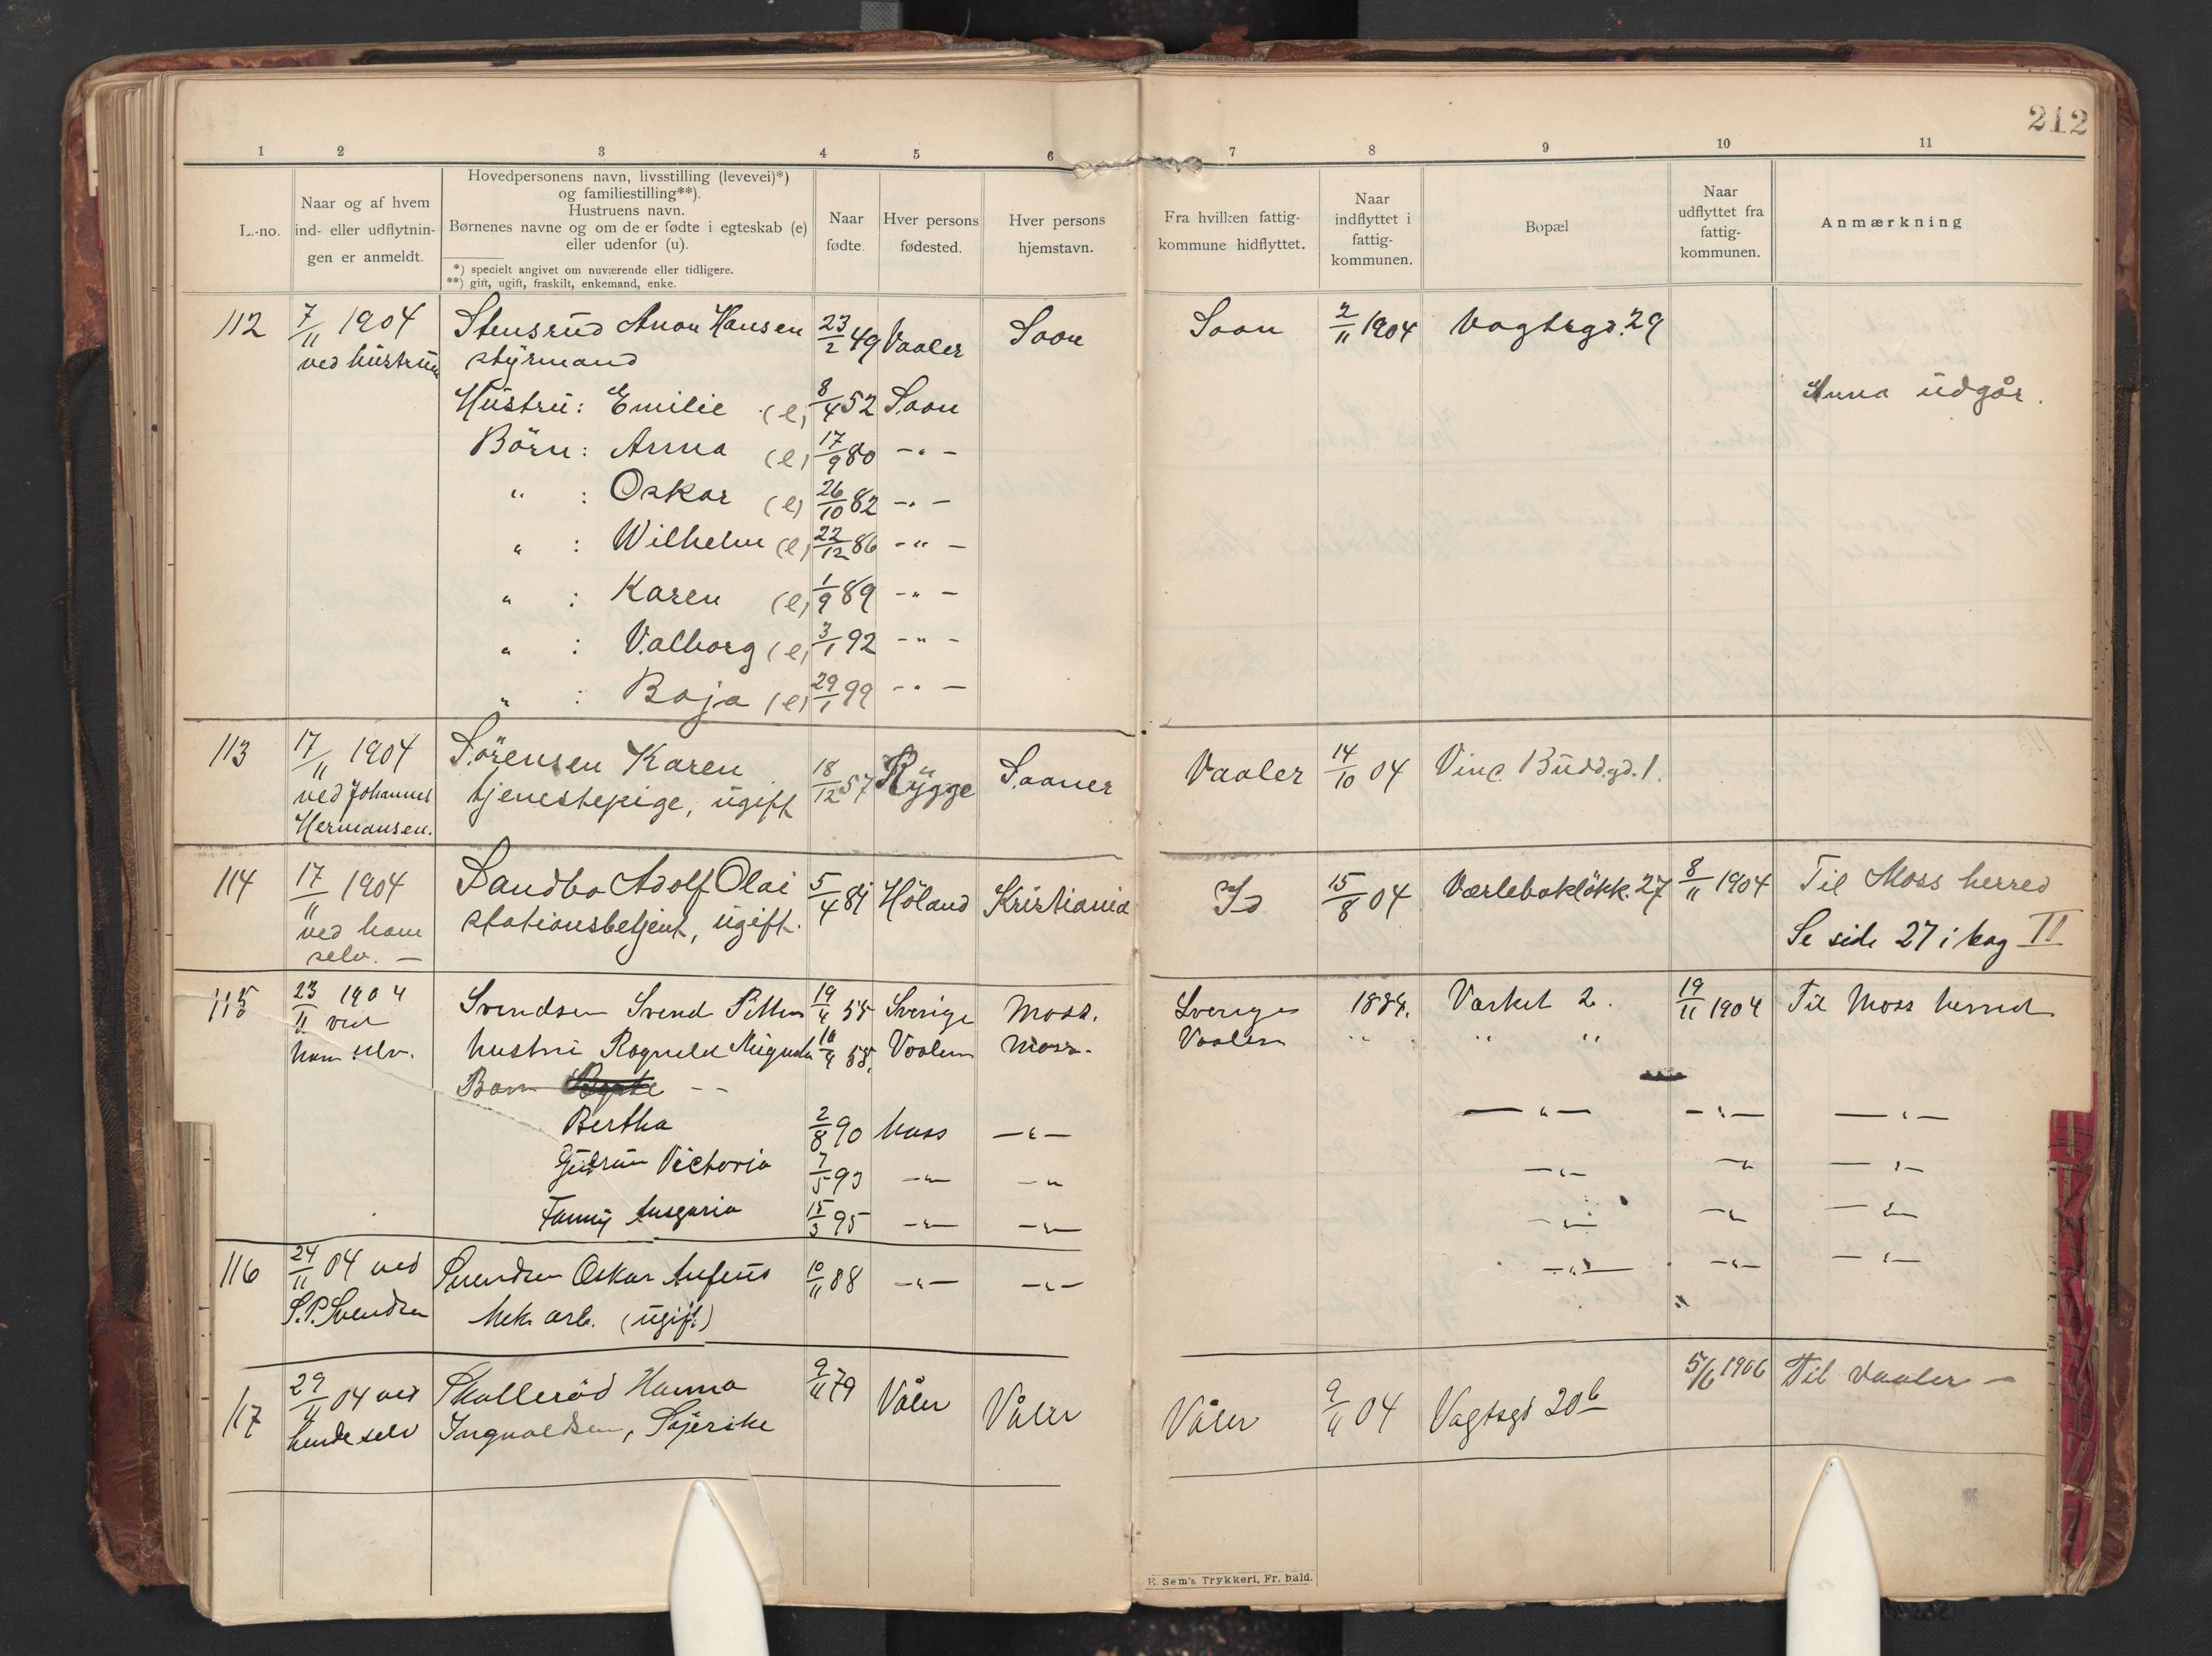 212
1 2 3 4 5 6 7 8 9 10 11
L.-no.
Naar og af hvem
ind- eller udflytnin-
gen er anmeldt.
Hovedpersonens navn, livsstilling (levevei)*)
og familiestilling**).
Hustruens navn.
Børnenes navne og om de er fødte i egteskab (e)
eller udenfor (u).
*) specielt angivet om nuværende eller tidligere.
**) gift, ugift, fraskilt, enkemand, enke.
Naar
fødte.
Hver persons
fødested.
Hver persons
hjemstavn.
Fra hvilken fattig-
kommune hidflyttet.
Naar
indflyttet i
fattig-
kommunen.
Bopæl
Naar
udflyttet fra
fattig-
kommunen.
Anmærkning
112 7/11 1904 Stensrud Anon Hansen 23/2 49 Vaaler Soon Soon 2/11 1904 Vogtsgd. 29
ved hustrun styrmand
Hustru: Emilie (e) 8/4 52 Soon Anna udgår.
Börn: Anna (e) 17/9 80 - " -
" : Oskar (e) 26/10 82 - " -
" : Wilhelm (e) 22/12 86 - " -
" : Karen (e) 1/9 89 - " -
" : Valborg (e) 3/1 92 - " -
" : Boja (e) 29/1 99 - " -
113 17/11 1904 Sörensen Karen 18/12 57 Rygge Saaner Vaaler 14/10 04 Vinc. Buddgd. 1.
ved Johannes tjenestepige, ugift
Hermansen.
114 17/11 1904 Sandbo Adolf Olai 5/4 81 Höland Kristiania Id 15/8 04 Værlebaklökk. 27 8/11 1904 Til Moss herred
ved ham stationsbetjent, ugift. Se side 27 i bog II
selv. —
115 23/11 1904 Svendsen Svend Petter 19/4 55 Sverige Moss. Sverige 1884. Værket 2. 19/11 1904 Til Moss herred
ved
ham selv. hustru Ragnild Augusta 10/4 58. Vaaler Moss. Vaaler " " "
Barn - -
Bertha 2/8 90 Moss — " — — " — — " — — " —
Gudrun Victoria 7/5 93 — " — — " — " — — " — " —
Fanny Ansgaria 15/3 95 — " — — " — — " — — " — " —
116 24/11 04 ved Svendsen Oskar Anfeus 10/11 88 — " — — " — — " — — " — — " —
S. P. Svendsen Mek. arb. (ugift) "
117 29/11 04 ved Skallerød Hanna 9/11 79 Våler Våler Våler 9/11 04 Vogtsgd 20b 5/6 1906 Til Vaaler —
hende selv Ingvaldsen, Syerske
E. Sem's Trykkeri, Fr. hald.